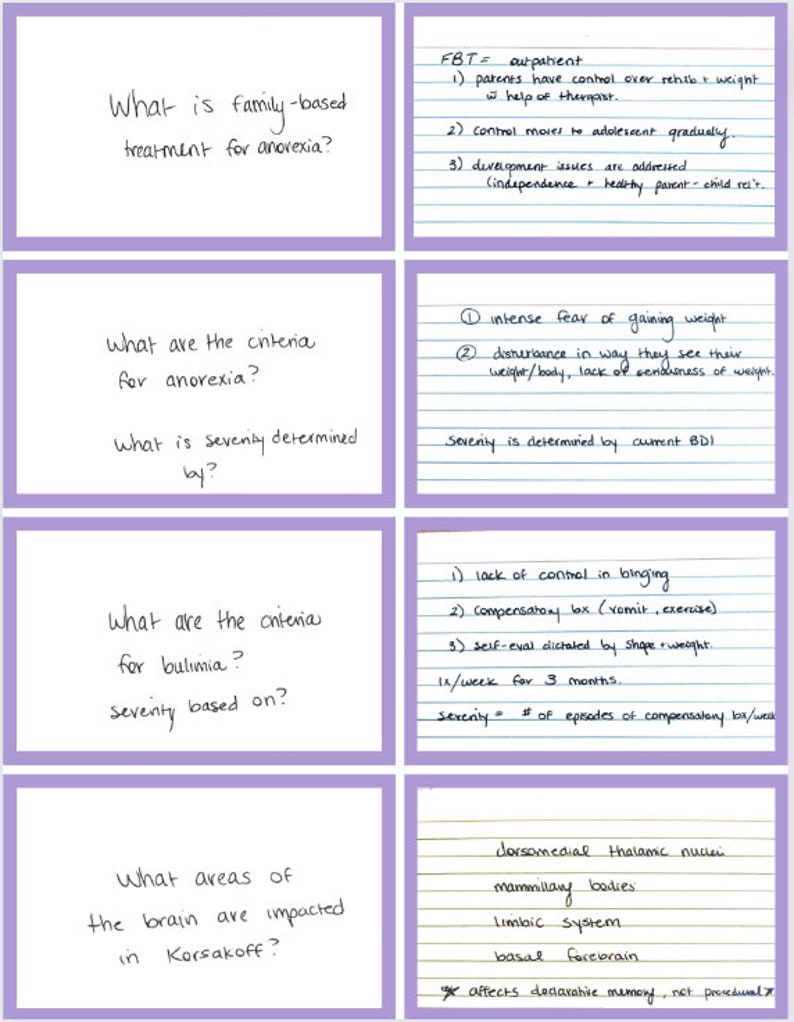 What is family-based
treatment for anorexia?
FBT = outpatient
1) parents have control over rehab + weight
w̄ help of therapist.
2) control moves to adolescent gradually.
3) development issues are addressed
(independence + healthy parent-child rel't.
What are the criteria
for anorexia?
What is severity determined
by?
① intense fear of gaining weight
② disturbance in way they see their
weight/body, lack of seriousness of weight.
Severity is determined by current BDI
What are the criteria
for bulimia?
severity based on?
1) lack of control in binging
2) compensatory bx (vomit, exercise)
3) self-eval dictated by shape + weight.
1x/week for 3 months.
severity = # of episodes of compensatory bx/week
What areas of
the brain are impacted
in Korsakoff?
dorsomedial thalamic nuclei
mammillary bodies
limbic system
basal forebrain
* affects declarative memory, not procedural *